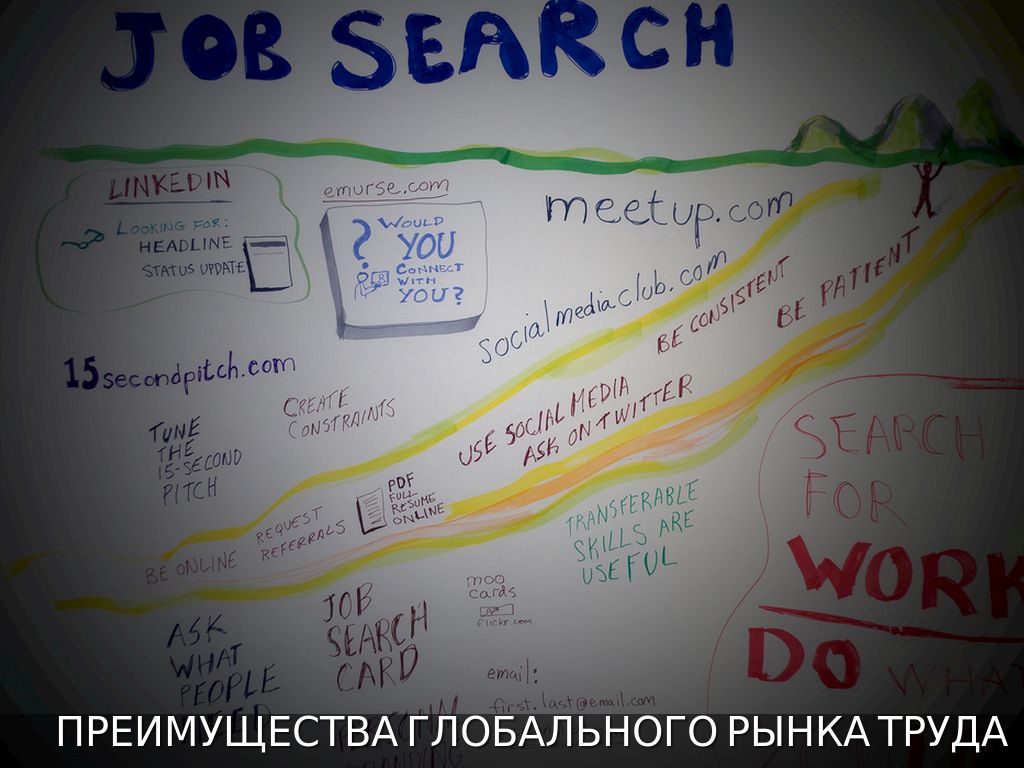 JOB SEARCH
LINKEDIN
LOOKING FOR:
HEADLINE
STATUS UPDATE
emurse.com
?
WOULD
YOU
CONNECT
WITH
YOU?
meetup.com
socialmediaclub.com
BE CONSISTENT
BE PATIENT
15secondpitch.com
TUNE
THE
15-SECOND
PITCH
CREATE
CONSTRAINTS
USE SOCIAL MEDIA
ASK ON TWITTER
PDF
FULL
RESUME
ONLINE
REQUEST
REFERRALS
BE ONLINE
TRANSFERABLE
SKILLS ARE
USEFUL
SEARCH
FOR
WORK
DO WHAT
ASK
WHAT
PEOPLE
JOB
SEARCH
CARD
moo
cards
flickr.com
email:
first.last@email.com
ПРЕИМУЩЕСТВА ГЛОБАЛЬНОГО РЫНКА ТРУДА